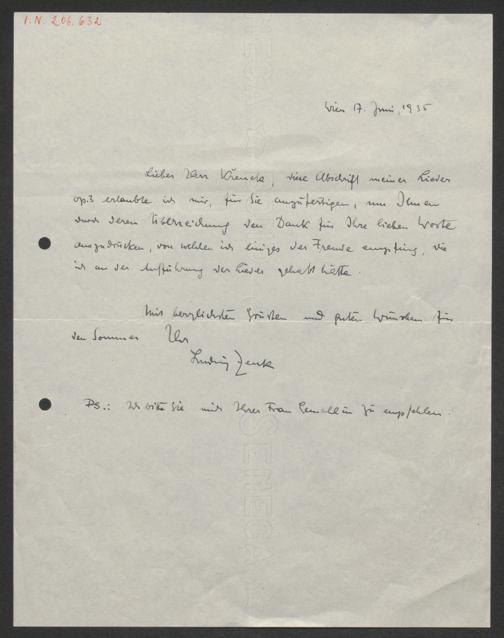 I.N. 206.632
Wien 17. Juni, 1935
Lieber Herr Křenek, eine Abschrift meiner Lieder
op. 3 erlaubte ich mir, für Sie anzufertigen, um Ihnen
durch deren Überreichung den Dank für Ihre lieben Worte
auszudrücken, von welchen ich einiges der Freude empfing, die
ich an der Aufführung der Lieder gehabt hätte.
Mit herzlichsten Grüssen und guten Wünschen für
den Sommer Ihr
Ludwig Zenk
PS.: Ich bitte Sie mich Ihrer Frau Gemahlin zu empfehlen.